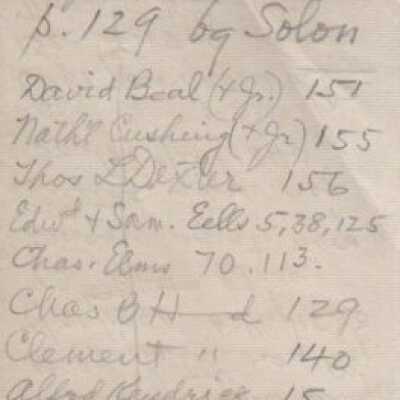 p. 129 by Solon
David Beal (+ Jr.) 151
Nath'l Cushing (+ Jr) 155
Thos L Dexter 156
Edwd + Sam. Eells 5,38,125
Chas. Elms 70.113.
Chas B H——d 129
Clement " 140
Alfred Kendrick 15